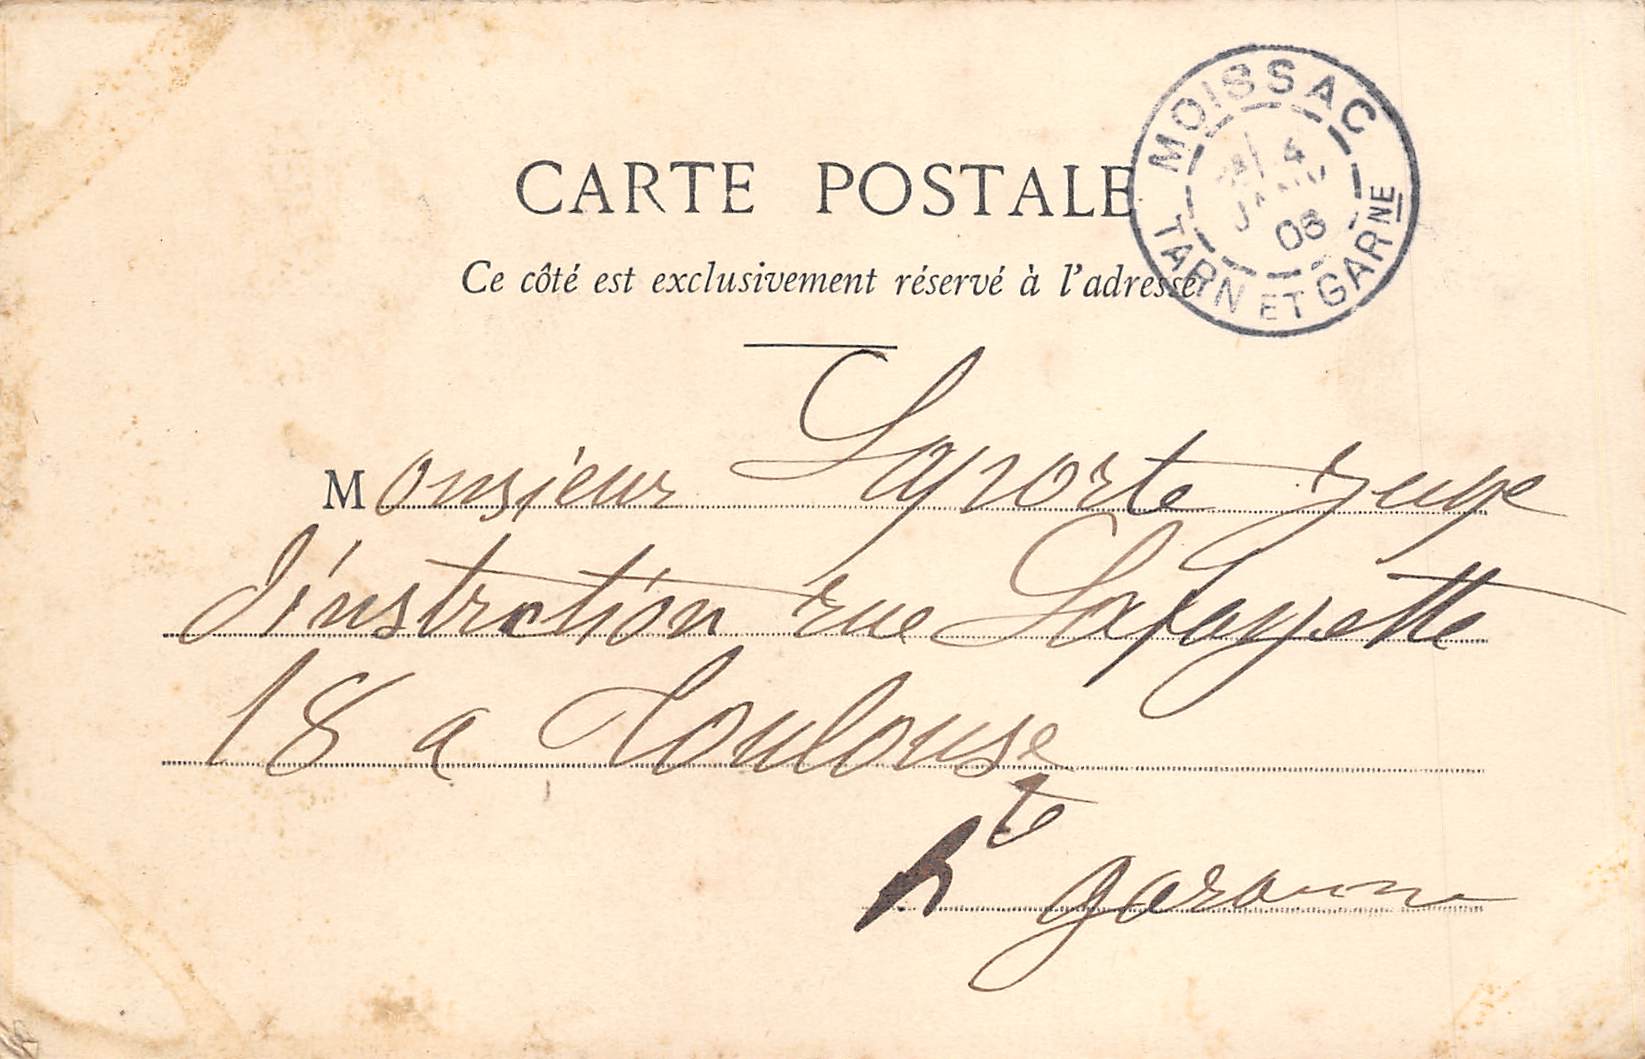 CARTE POSTALE
Ce côté est exclusivement réservé à l'adresse
MOISSAC
4
08
TARN ET GARNE
Monsieur Laporte juge
d'instrction rue Lafayette
18 a Toulouse
hte garonne